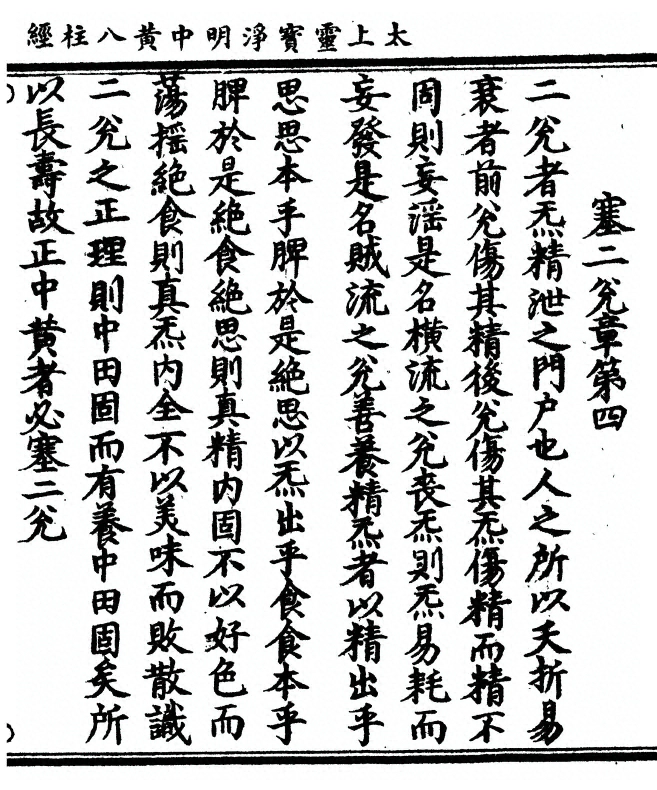 太上靈寶淨明中黃八柱經
塞二兊章第四
二兊者炁精泄之門户也人之所以夭折易
衰者前兊傷其精後兊傷其炁傷精而精不
固則妄淫是名橫流之兊丧炁則炁易耗而
妄發是名賊流之兊善養精炁者以精出乎
思思本乎脾於是絶思以炁出乎食食本乎
脾於是絶食絶思則真精内固不以好色而
蕩揺絶食則真炁内全不以美味而敗散識
二兊之正理則中田固而有養中田固矣所
以長壽故正中黄者必塞二兊